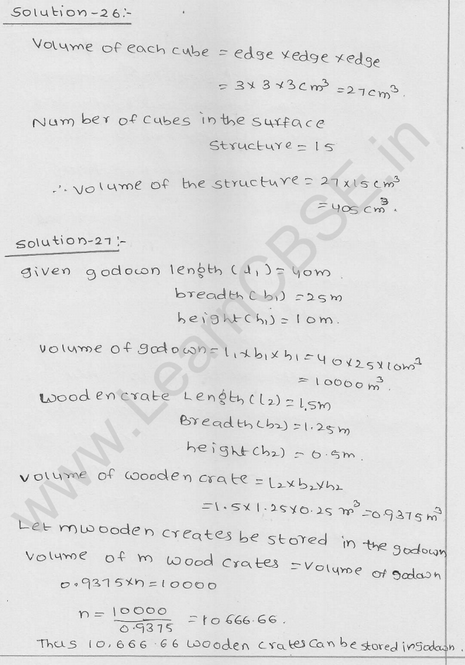 Solution-26:-
Volume of each cube = edge x edge x edge
= 3 x 3 x 3 cm³ = 27 cm³.
Number of cubes in the surface
Structure = 15
∴ volume of the structure = 27 x 15 cm³
= 405 cm³.
Solution-27:-
given godown length (l₁) = 40m.
breadth (b₁) = 25m
height (h₁) = 10m.
volume of godown = l₁ x b₁ x h₁ = 40 x 25 x 10 m³
= 10000 m³.
Wooden crate Length (l2) = 1.5m
Breadth (b2) = 1.25m
height (h2) = 0.5m.
volume of wooden crate = l2 x b2 x h2
= 1.5 x 1.25 x 0.25 m³ = 0.9375 m³
Let m wooden creates be stored in the godown
Volume of m wood crates = volume of godown
0.9375 x n = 10000
n = 10000/0.9375 = 10666.66.
Thus 10,666.66 wooden crates can be stored in godown.
www.LearnCBSE.in